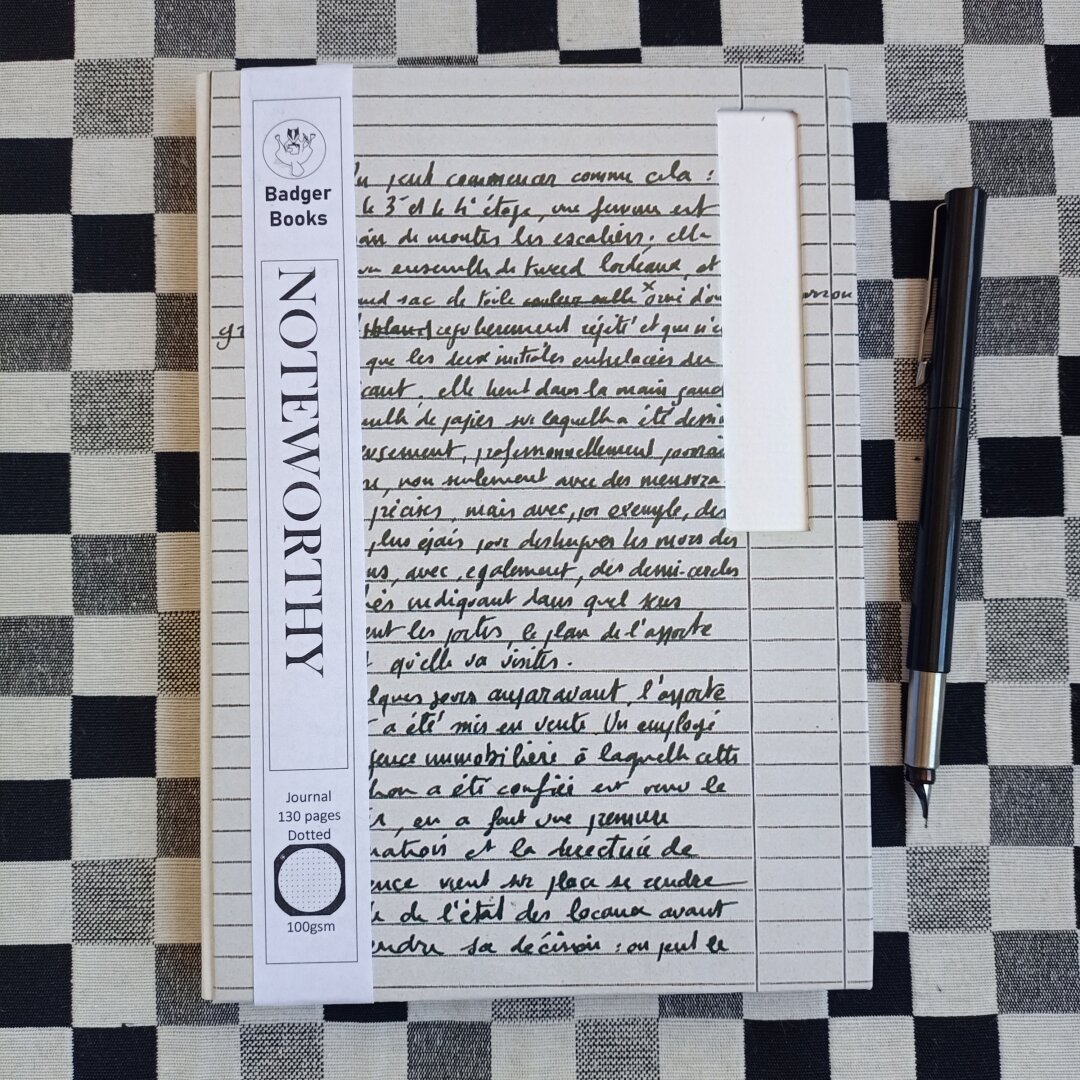 Badger
Books
NOTEWORTHY
Journal
130 pages
Dotted
100gsm
peut commencer comme cela :
le 3e et le 4e étage, une femme est
de monter les escaliers. elle
ensemble de tweed bordeaux, et
sac de toile orné d'un
régulièrement répété et qui n'e
que les deux initiales entrelacées du
elle tient dans la main gauc
de papier sur laquelle a été dessi
professionnellement
non seulement avec des mensura-
précises, mais avec, par exemple, des
plus épais pour distinguer les murs des
avec, également, des demi-cercles
indiquant dans quel sens
les portes, le plan de l'apparte
qu'elle va visiter.
lques jours auparavant, l'apparte
a été mis en vente. Un employé
gence immobilière à laquelle cette
a été confiée est venu le
en a fait une première
mation et la directrice de
ence vient sur place se rendre
de l'état des locaux avant
endre sa décision : on peut le